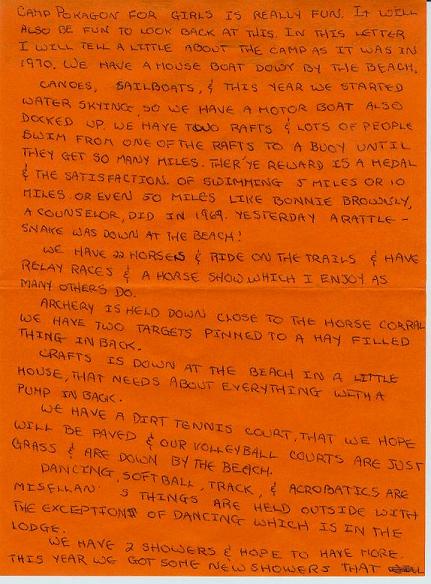 CAMP POKAGON FOR GIRLS IS REALLY FUN. IT WILL
ALSO BE FUN TO LOOK BACK AT THIS. IN THIS LETTER
I WILL TELL A LITTLE ABOUT THE CAMP AS IT WAS IN
1970. WE HAVE A HOUSE BOAT DOWN BY THE BEACH.
CANOES, SAILBOATS, & THIS YEAR WE STARTED
WATER SKYING SO WE HAVE A MOTOR BOAT ALSO
DOCKED UP. WE HAVE TWO RAFTS & LOTS OF PEOPLE
SWIM FROM ONE OF THE RAFTS TO A BUOY UNTIL
THEY GET SO MANY MILES. THER'YE REWARD IS A MEDAL
& THE SATISFACTION OF SWIMMING 5 MILES OR 10
MILES OR EVEN 50 MILES LIKE BONNIE
A COUNSELOR, DID IN 1969. YESTERDAY A RATTLE-
SNAKE WAS DOWN AT THE BEACH!
WE HAVE 22 HORSES & RIDE ON THE TRAILS & HAVE
RELAY RACES & A HORSE SHOW WHICH I ENJOY AS
MANY OTHERS DO.
ARCHERY IS HELD DOWN CLOSE TO THE HORSE CORRAL
WE HAVE TWO TARGETS PINNED TO A HAY FILLED
THING IN BACK.
CRAFTS IS DOWN AT THE BEACH IN A LITTLE
HOUSE, THAT NEEDS ABOUT EVERYTHING WITH A
PUMP IN BACK.
WE HAVE A DIRT TENNIS COURT, THAT WE HOPE
WILL BE PAVED & OUR VOLLEYBALL COURTS ARE JUST
GRASS & ARE DOWN BY THE BEACH.
DANCING, SOFTBALL, TRACK, & ACROBATICS ARE
MISELLAN' S THINGS ARE HELD OUTSIDE WITH
THE EXCEPTIONS OF DANCING WHICH IS IN THE
LODGE.
WE HAVE 2 SHOWERS & HOPE TO HAVE MORE.
THIS YEAR WE GOT SOME NEW SHOWERS THAT